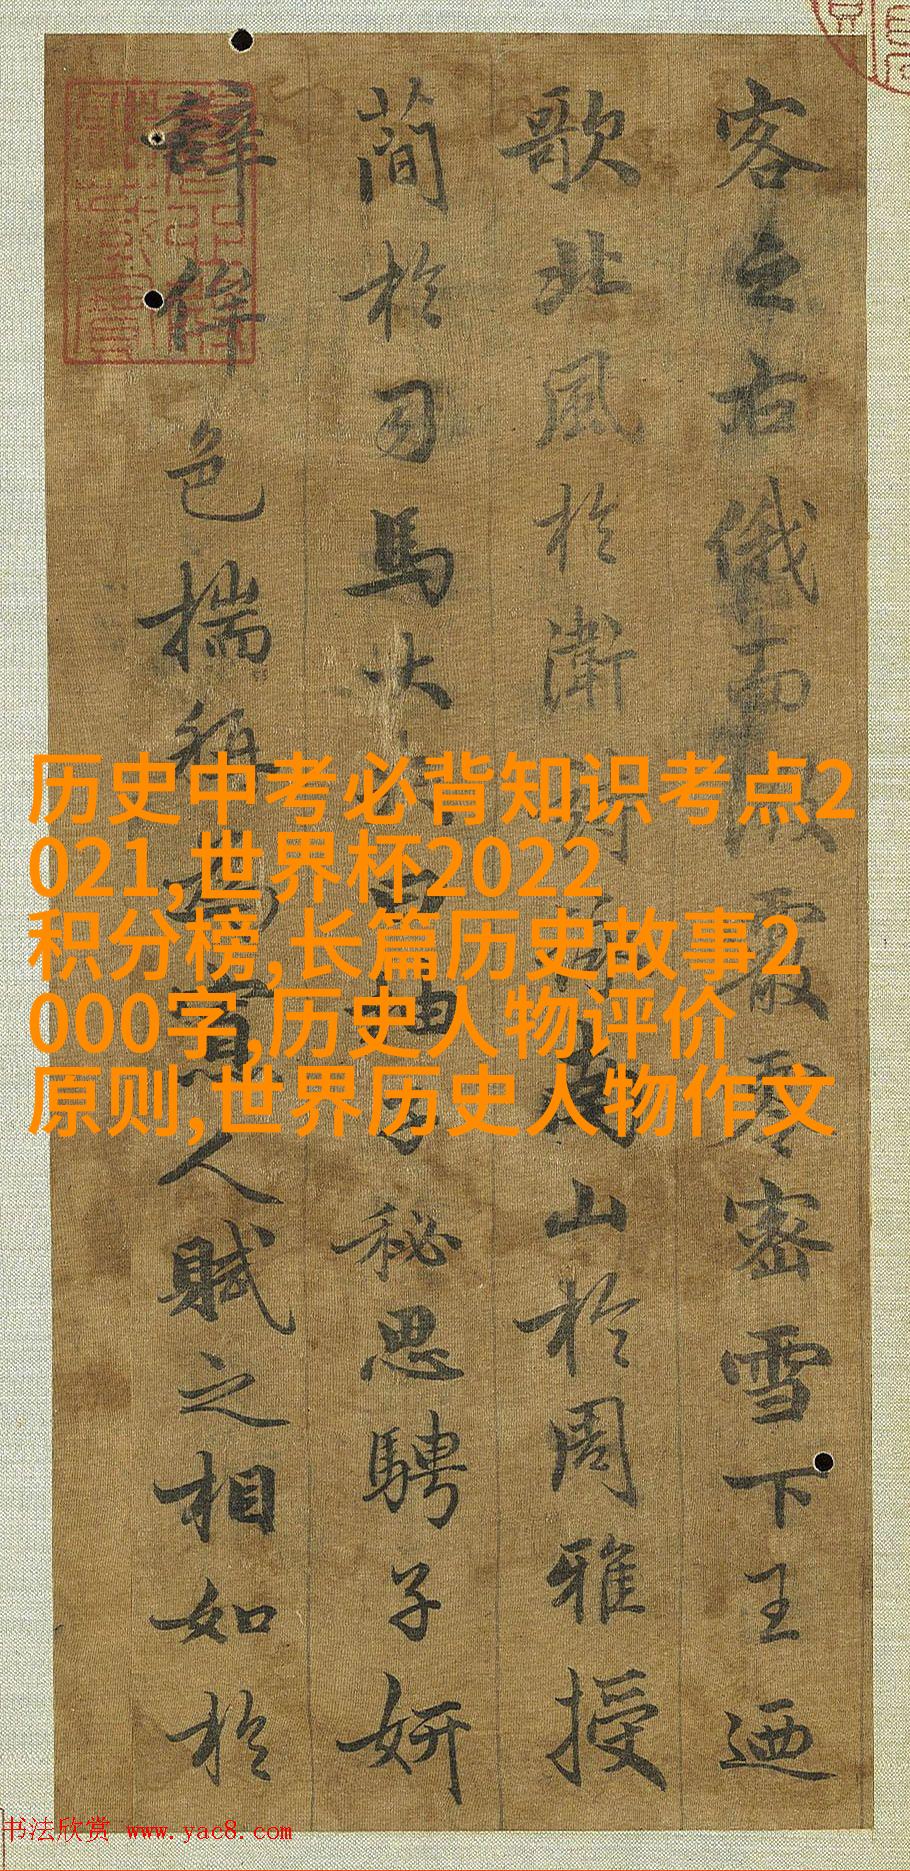 客之右俄而微霰零密雪下王迺
歌北風於衛詩南山於周雅授
簡於司馬大夫曰抽子秘思騁子妍
辭侔色揣稱為人賦之相如於
历史中考必背知识考点2
021,世界杯2022
积分榜,长篇历史故事2
000字,历史人物评价
原则,世界历史人物作文
书法欣赏 www.yac8.com